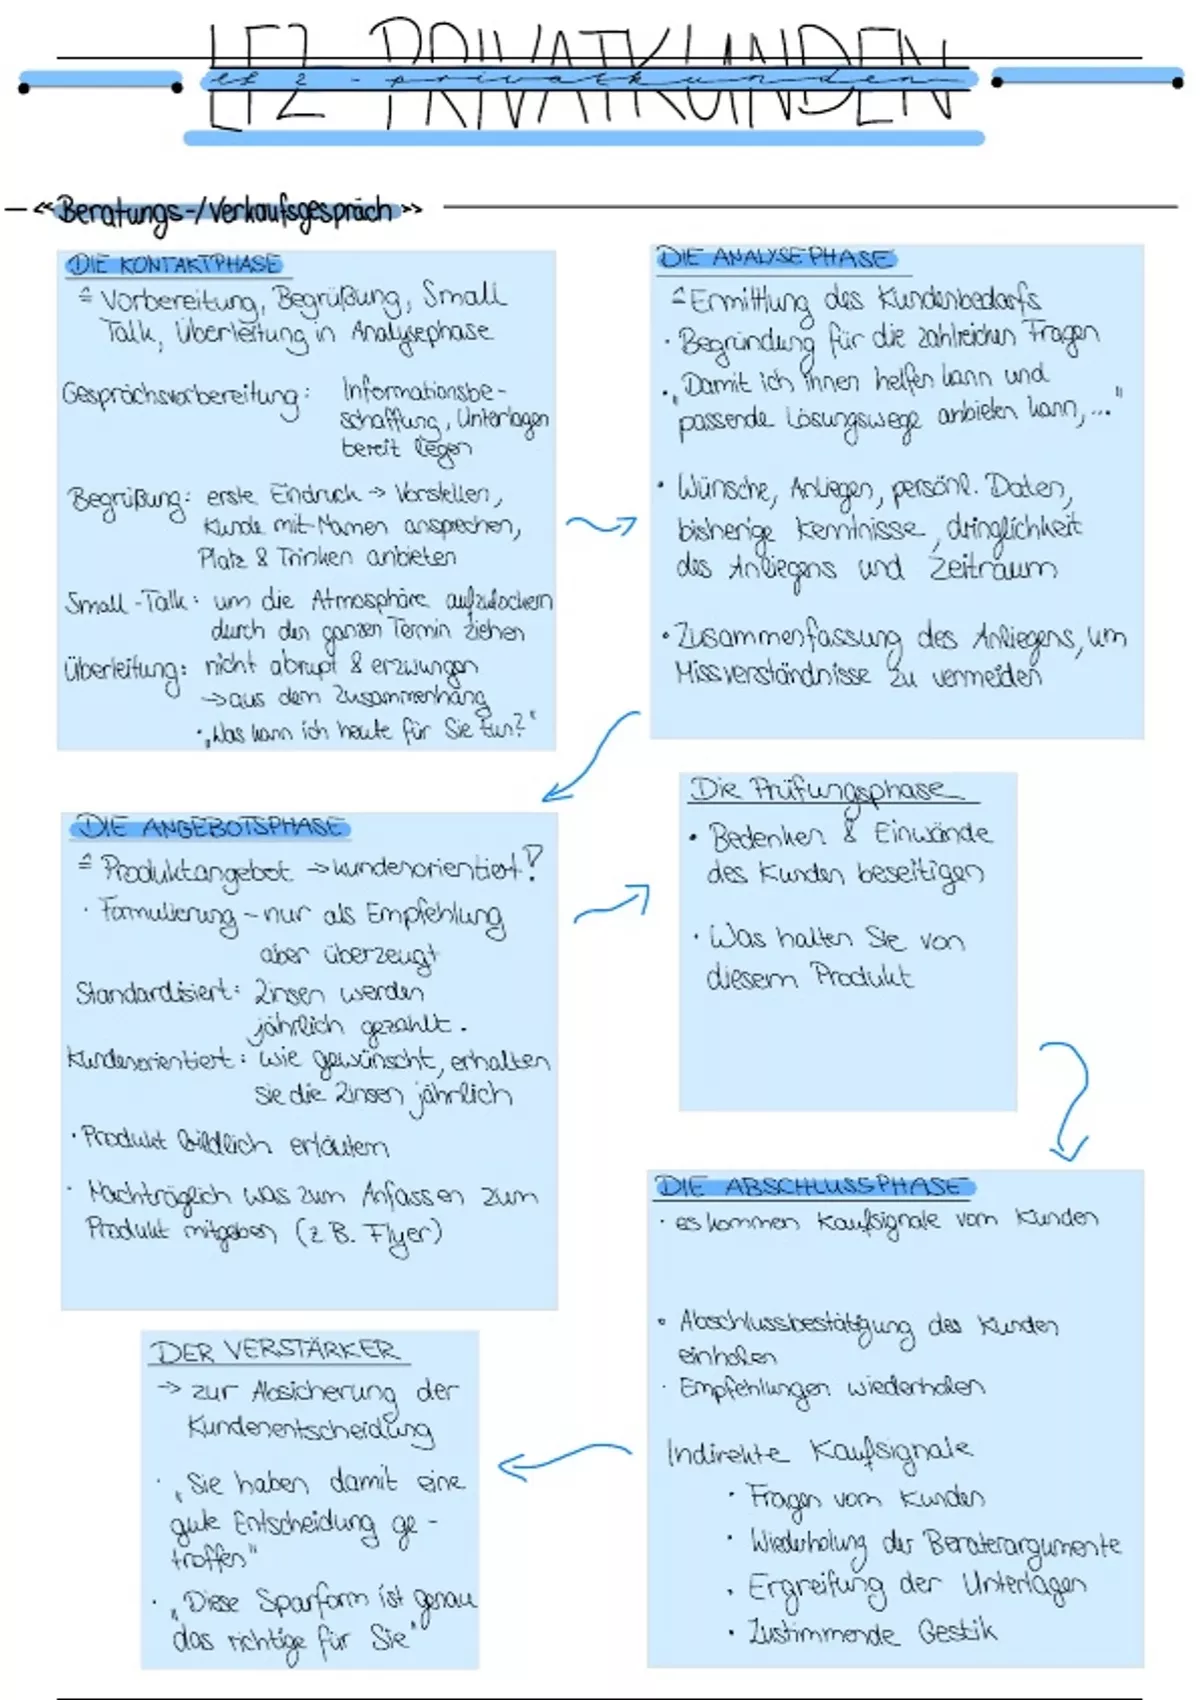 LF2 PRIVATKUNDEN
lf 2 - privatkunden
«Beratungs-/Verkaufsgespräch»
DIE KONTAKTPHASE
≙ Vorbereitung, Begrüßung, Small
Talk, Überleitung in Analysephase
Gesprächsvorbereitung: Informationsbe-
schaffung, Unterlagen
bereit legen
Begrüßung: erste Eindruck → Vorstellen,
Kunde mit Namen ansprechen,
Platz & Trinken anbieten
Small-Talk: um die Atmosphäre aufzulockern
durch den ganzen Termin ziehen
Überleitung: nicht abrupt & erzwungen
→ aus dem Zusammenhang
• „Was kann ich heute für Sie tun?"
DIE ANALYSEPHASE
≙ Ermittlung des Kundenbedarfs
• Begründung für die zahlreichen Fragen
• „Damit ich ihnen helfen kann und
passende Lösungswege anbieten kann,..."
• Wünsche, Anliegen, persönl. Daten,
bisherige Kenntnisse, dringlichkeit
des Anliegens und Zeitraum
• Zusammenfassung des Anliegens, um
Missverständnisse zu vermeiden
DIE ANGEBOTSPHASE
≙ Produktangebot → kundenorientiert!
• Formulierung - nur als Empfehlung
aber überzeugt
Standardisiert: Zinsen werden
jährlich gezahlt.
Kundenorientiert: wie gewünscht, erhalten
sie die Zinsen jährlich
• Produkt bildlich erläutern
• Nachträglich was zum Anfassen zum
Produkt mitgeben (z.B. Flyer)
Die Prüfungsphase
• Bedenken & Einwände
des Kunden beseitigen
• Was halten Sie von
diesem Produkt
DIE ABSCHLUSSPHASE
• es kommen Kaufsignale vom Kunden
• Abschlussbestätigung des Kunden
einholen
• Empfehlungen wiederholen
Indirekte Kaufsignale
• Fragen vom Kunden
• Wiederholung der Beraterargumente
• Ergreifung der Unterlagen
• Zustimmende Gestik
DER VERSTÄRKER
→ zur Absicherung der
Kundenentscheidung
• „Sie haben damit eine
gute Entscheidung ge-
troffen"
• „Diese Sparform ist genau
das richtige für Sie"